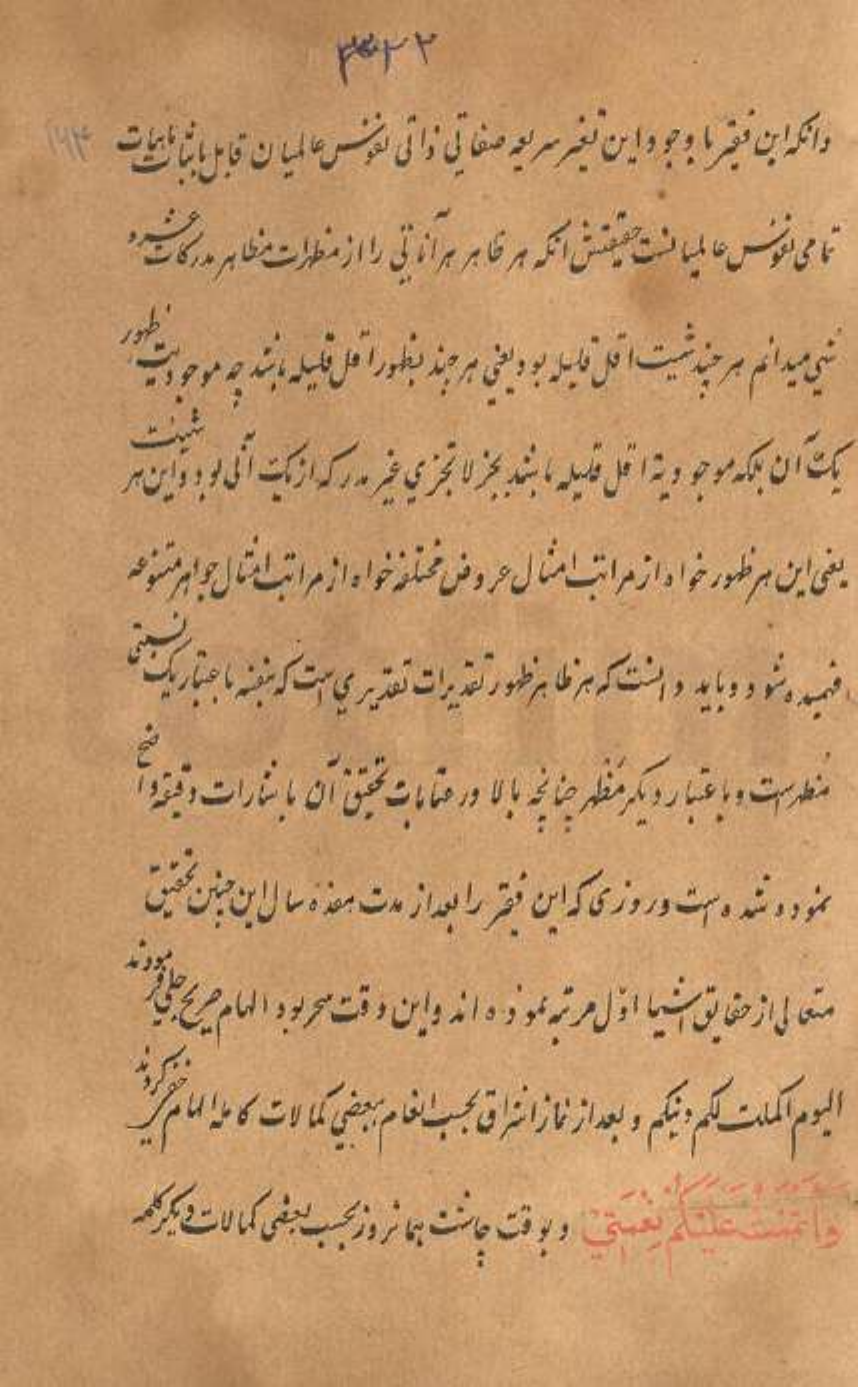 ۳۳۲۲
۱۶۳
وانکه این فقیر با وجود این تغیر سریعه صفاتی ذاتی نفوس عالمیان قابل باثبات ثابتات
تمامی نفوس عالمیانست حقیقتش انکه هر ظاهر هر آناتی را از مظهرات مظاهر مدرکات عشره
شی میدانم هر چند شیئیت اقل قلیله بود یعنی هر چند بظهور اقل قلیله باشد چه موجودیت ظهور
یک آن بلکه موجودیة اقل قلیله باشد بجز لا تجزی غیر مدرکه از یک آنی بود و این هر شیئیت
یعنی این هر ظهور خواه از مراتب امثال عروض مختلفه خواه از مراتب امثال جواهر متنوعه
فهمیده شود و باید دانست که هر ظاهر ظهور تقدیرات تقدیری است که بنفسه باعتبار یک نسبتی
مُظهرست و باعتبار دیگر مَظهر چنانچه بالا در عتابات تحقیق آن باشارات دقیقه واضح
نموده شده است و روزی که این فقیر را بعد از مدت هفده سال این چنین تحقیق
متعالی از حقایق اشیا اول مرتبه نموده اند و این وقت سحر بود الهام صریح جلی فرمودند
الیوم اکملت لکم دینکم و بعد از نماز اشراق بحسب انعام ببعضی کمالات کامله الهام خفی کردند
وَاَتْمَمْتُ عَلَيْكُمْ نِعْمَتِي و بوقت چاشت همانروز بحسب بعضی کمالات دیگر کلمه